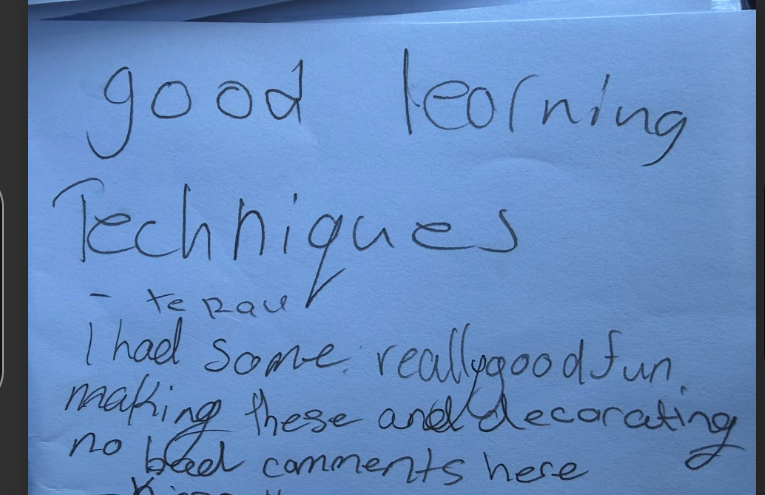 good learning
Techniques
- te rau
I had some really good fun
making these and decorating
no bad comments here